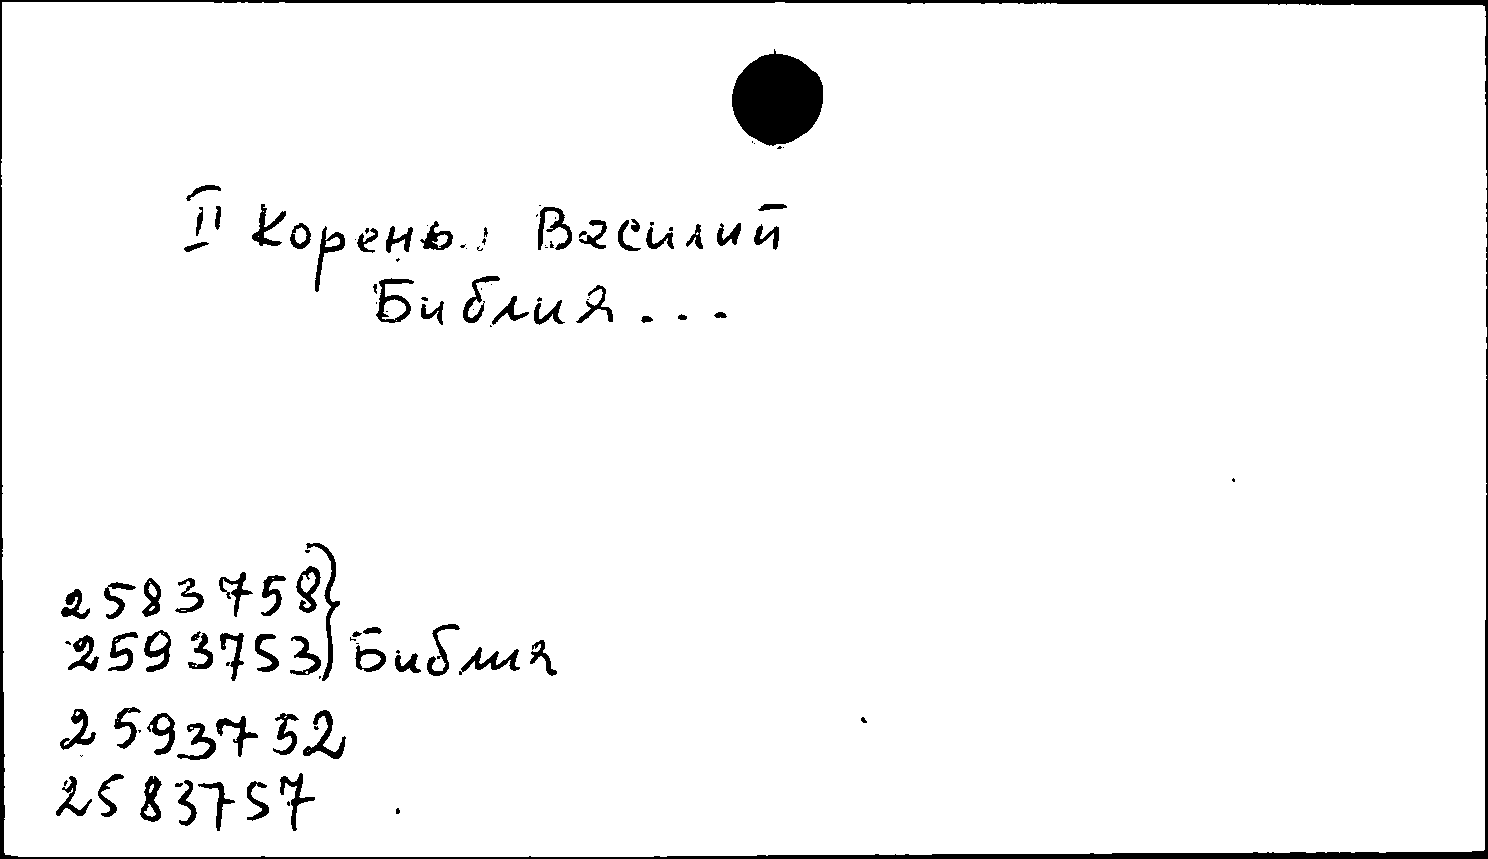 II Корень, Василий
Библия...
2583758
2593753 } Библия
2593752
2583757